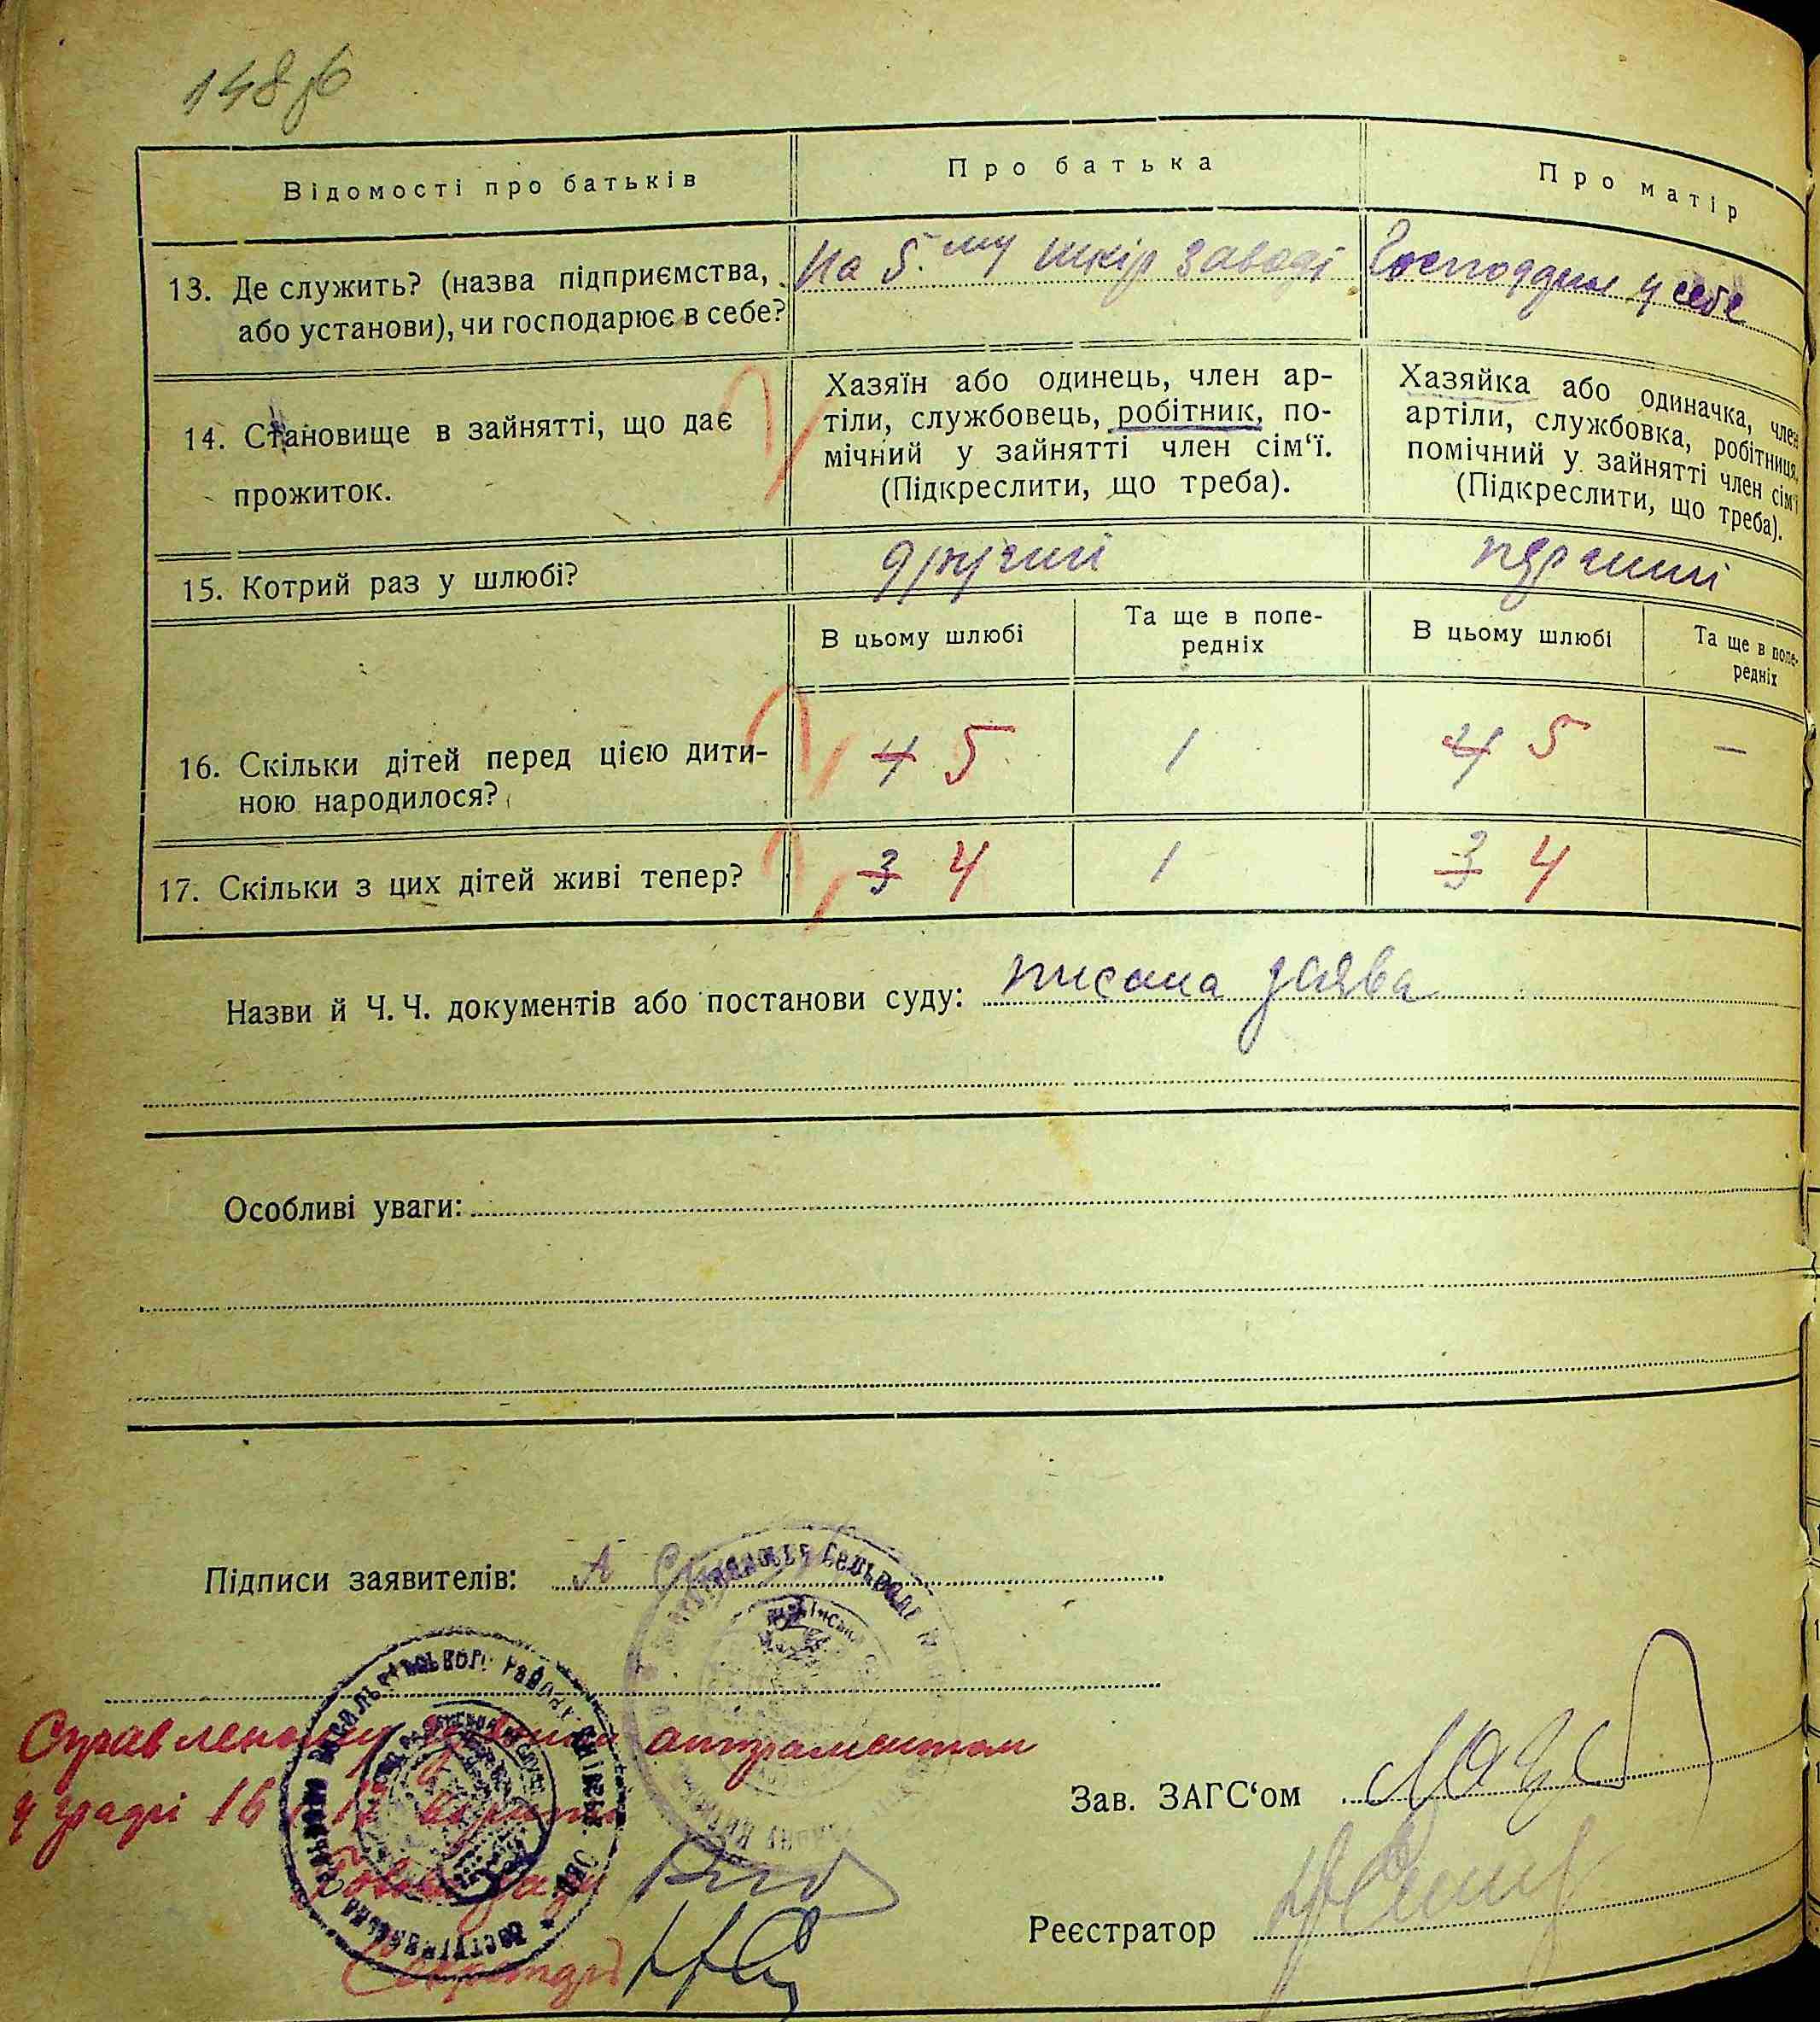 148 зб
Відомості про батьків
Про батька
Про матір
13. Де служить? (назва підприємства,
або установи), чи господарює в себе?
На 5.му шкір заводі
у себе
14. Становище в зайнятті, що дає
прожиток.
Хазяїн або одинець, член ар-
тіли, службовець, робітник, по-
мічний у зайнятті член сім‘ї.
(Підкреслити, що треба).
Хазяйка або одиначка, член
артіли, службовка, робітниця,
помічний у зайнятті член сім‘ї
(Підкреслити, що треба).
15. Котрий раз у шлюбі?
другий
перший
В цьому шлюбі
Та ще в попе-
редніх
В цьому шлюбі
Та ще в попе-
редніх
16. Скільки дітей перед цією дити-
ною народилося?
4 5
1
4 5
—
17. Скільки з цих дітей живі тепер?
3 4
1
3 4
Назви й Ч. Ч. документів або постанови суду: писана заява
Особливі уваги:
Підписи заявителів:
Справленому атраментом
у графі 16 17
Зав. ЗАГС‘ом
Голова
Реєстратор
Секретар